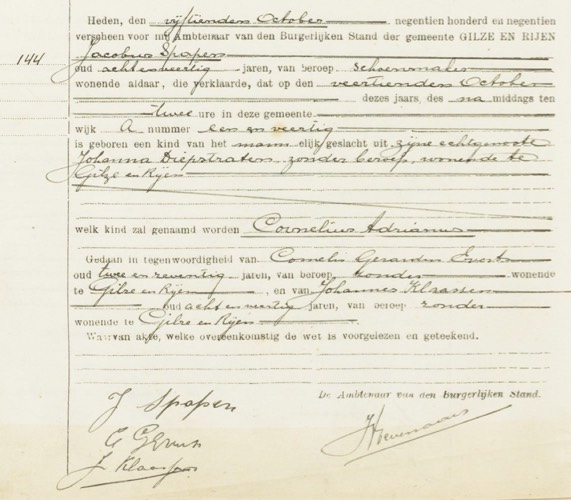 Heden, den vijftienden October negentien honderd en negentien
verscheen voor mij Ambtenaar van den Burgerlijken Stand der gemeente GILZE EN RIJEN
144
Jacobus Spapen
oud acht en veertig jaren, van beroep schoenmaker
wonende aldaar, die verklaarde, dat op den veertienden October
dezes jaars, des na middags ten
twee ure in deze gemeente
wijk A nummer een en veertig
is geboren een kind van het mann elijk geslacht uit zijne echtgenoote
Johanna Diepstraten, zonder beroep, wonende te
Gilze en Rijen
welk kind zal genaamd worden Cornelius Adrianus
Gedaan in tegenwoordigheid van Cornelis Gerardus Everts
oud twee en zeventig jaren, van beroep zonder wonende
te Gilze en Rijen, en van Johannes Klaassen
oud acht en veertig jaren, van beroep zonder
wonende te Gilze en Rijen
Waarvan akte, welke overeenkomstig de wet is voorgelezen en geteekend.
De Ambtenaar van den Burgerlijken Stand.
J Spapen
J Klaassen